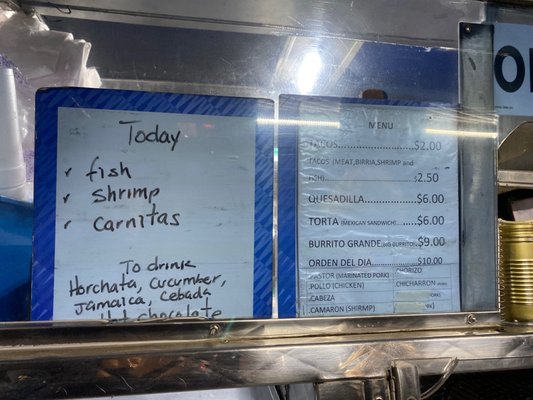 Today
fish
shrimp
carnitas
To drink
Horchata, cucumber,
Jamaica, cebada
Hot chocolate
MENU
TACOS.................$2.00
TACOS (MEAT,BIRRIA,SHRIMP and
FISH)....................$2.50
QUESADILLA................$6.00
TORTA (MEXICAN SANDWICH)......$6.00
BURRITO GRANDE(BIG BURRITO)...$9.00
ORDEN DEL DIA................$10.00
.PASTOR (MARINATED PORK) .CHORIZO
.POLLO (CHICKEN) .CHICHARRON
.CABEZA
.CAMARON (SHIRMP)